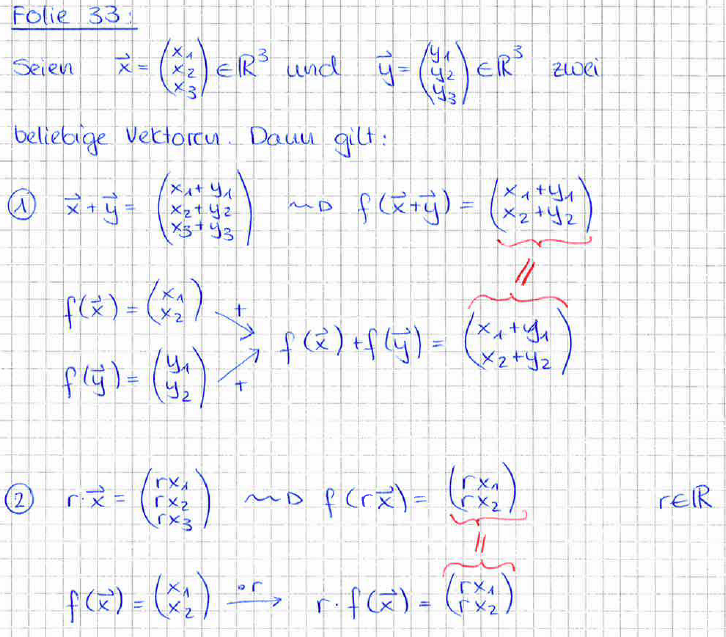 Folie 33:
Seien x⃗ = (x₁ x₂ x₃) ∈ ℝ³ und y⃗ = (y₁ y₂ y₃) ∈ ℝ³ zwei
beliebige Vektoren. Dann gilt:
① x⃗ + y⃗ = (x₁+y₁ x₂+y₂ x₃+y₃) ⇝ f(x⃗+y⃗) = (x₁+y₁ x₂+y₂)
=
f(x⃗) = (x₁ x₂) +
f(x⃗) + f(y⃗) = (x₁+y₁ x₂+y₂)
f(y⃗) = (y₁ y₂) +
② r·x⃗ = (rx₁ rx₂ rx₃) ⇝ f(rx⃗) = (rx₁ rx₂) r∈ℝ
=
f(x⃗) = (x₁ x₂) ·r → r·f(x⃗) = (rx₁ rx₂)